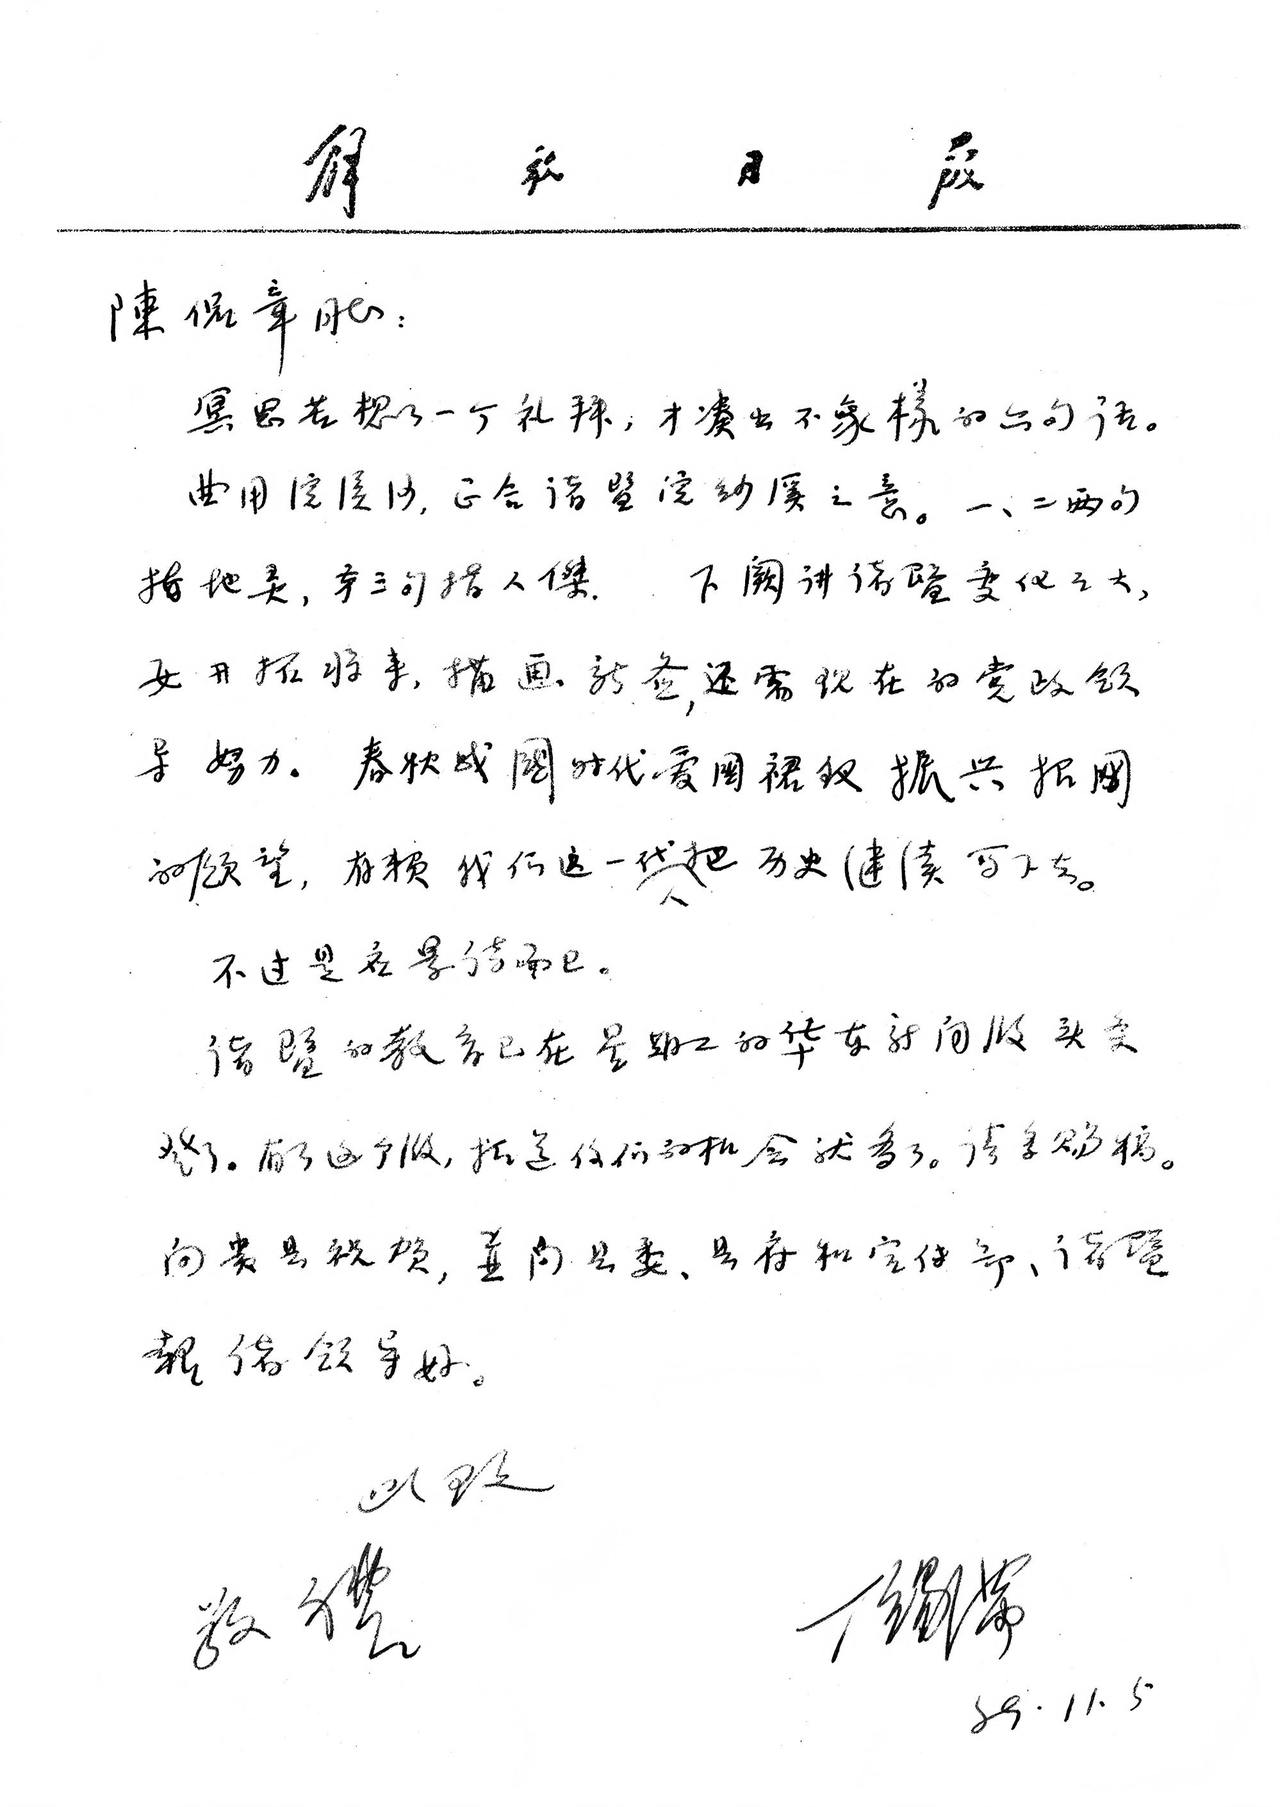 解放日报
陳侃章同志：
冥思苦想了一个礼拜，才凑出不象樣的六句话。
曲用浣溪沙，正合諸暨浣纱溪之意。一、二两句
指地灵，第三句指人傑。 下阕讲諸暨变化之大，
要开拓將来，描画新 ，还需现在的党政领
导努力。春秋战國时代爱国裙钗振兴祖國
的願望，有赖我们这一代人把历史继续写下去。
不过是应景诗而已。
諸暨的教育已在星期二的华东新闻版头条
发了。有了这个版，报道你们的机会就多了。请多赐稿。
向贵县祝贺，并向县委、县府和宣传部、諸暨
報诸领导好。
此致
敬禮

89.11.5